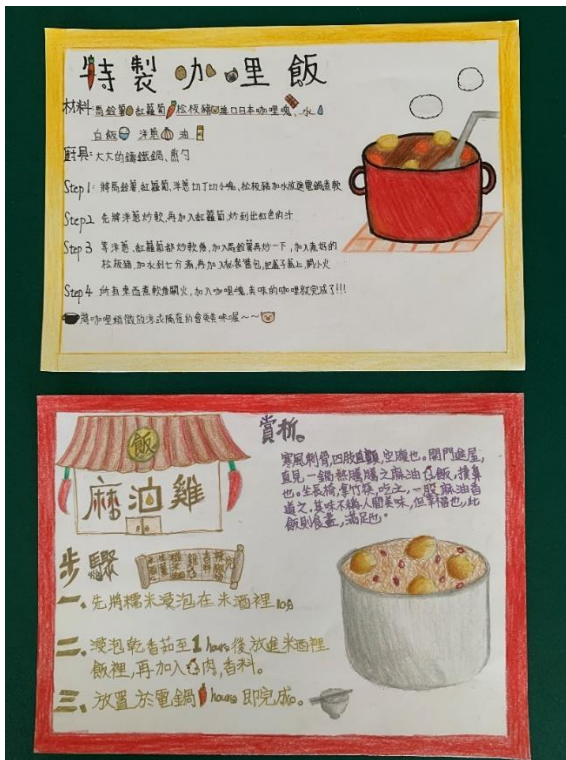 特製咖哩飯
材料:馬鈴薯、紅蘿蔔、松板豬、進口日本咖哩塊、水
白飯、洋蔥、油
廚具:大大的鑄鐵鍋、煎勺
Step1:將馬鈴薯、紅蘿蔔、洋蔥切丁切小塊,松板豬加水放進電鍋煮軟
Step2 先將洋蔥炒軟,再加入紅蘿蔔,炒到出紅色的汁
Step3 等洋蔥、紅蘿蔔都炒軟後,加入馬鈴薯再炒一下,加入煮好的
松板豬,加水到七分滿,再加入秘製醬包,把蓋子蓋上,開小火
Step4 所有東西煮軟後關火,加入咖哩塊,美味的咖哩就完成了!!!
將咖哩稍微放涼或隔夜
會更美味喔~~
飯
麻油雞
賞析。
寒風刺骨,四肢直顫,空腹也。開門進屋,
直見一鍋熱騰騰之麻油飯,撲鼻
也。坐長椅,拿竹筷,吃之,一股麻油香
道之,其味不稱人間美味,但幸福也,此
飯則食畫,滿足也。
步驟
一、先將糯米浸泡在米酒裡10g
二、浸泡乾香茄至1hours後,放進米酒裡
飯裡,再加入肉,香料。
三、放置於電鍋1hours即完成。